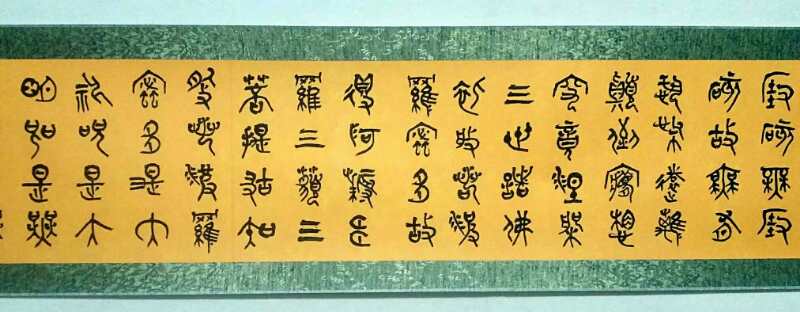 罣礙無罣
礙故無有
恐怖遠離
顛倒夢想
究竟涅槃
三世諸佛
依般若波
羅蜜多故
得阿耨多
羅三藐三
菩提故知
般若波羅
蜜多是大
神咒是大
明咒是無